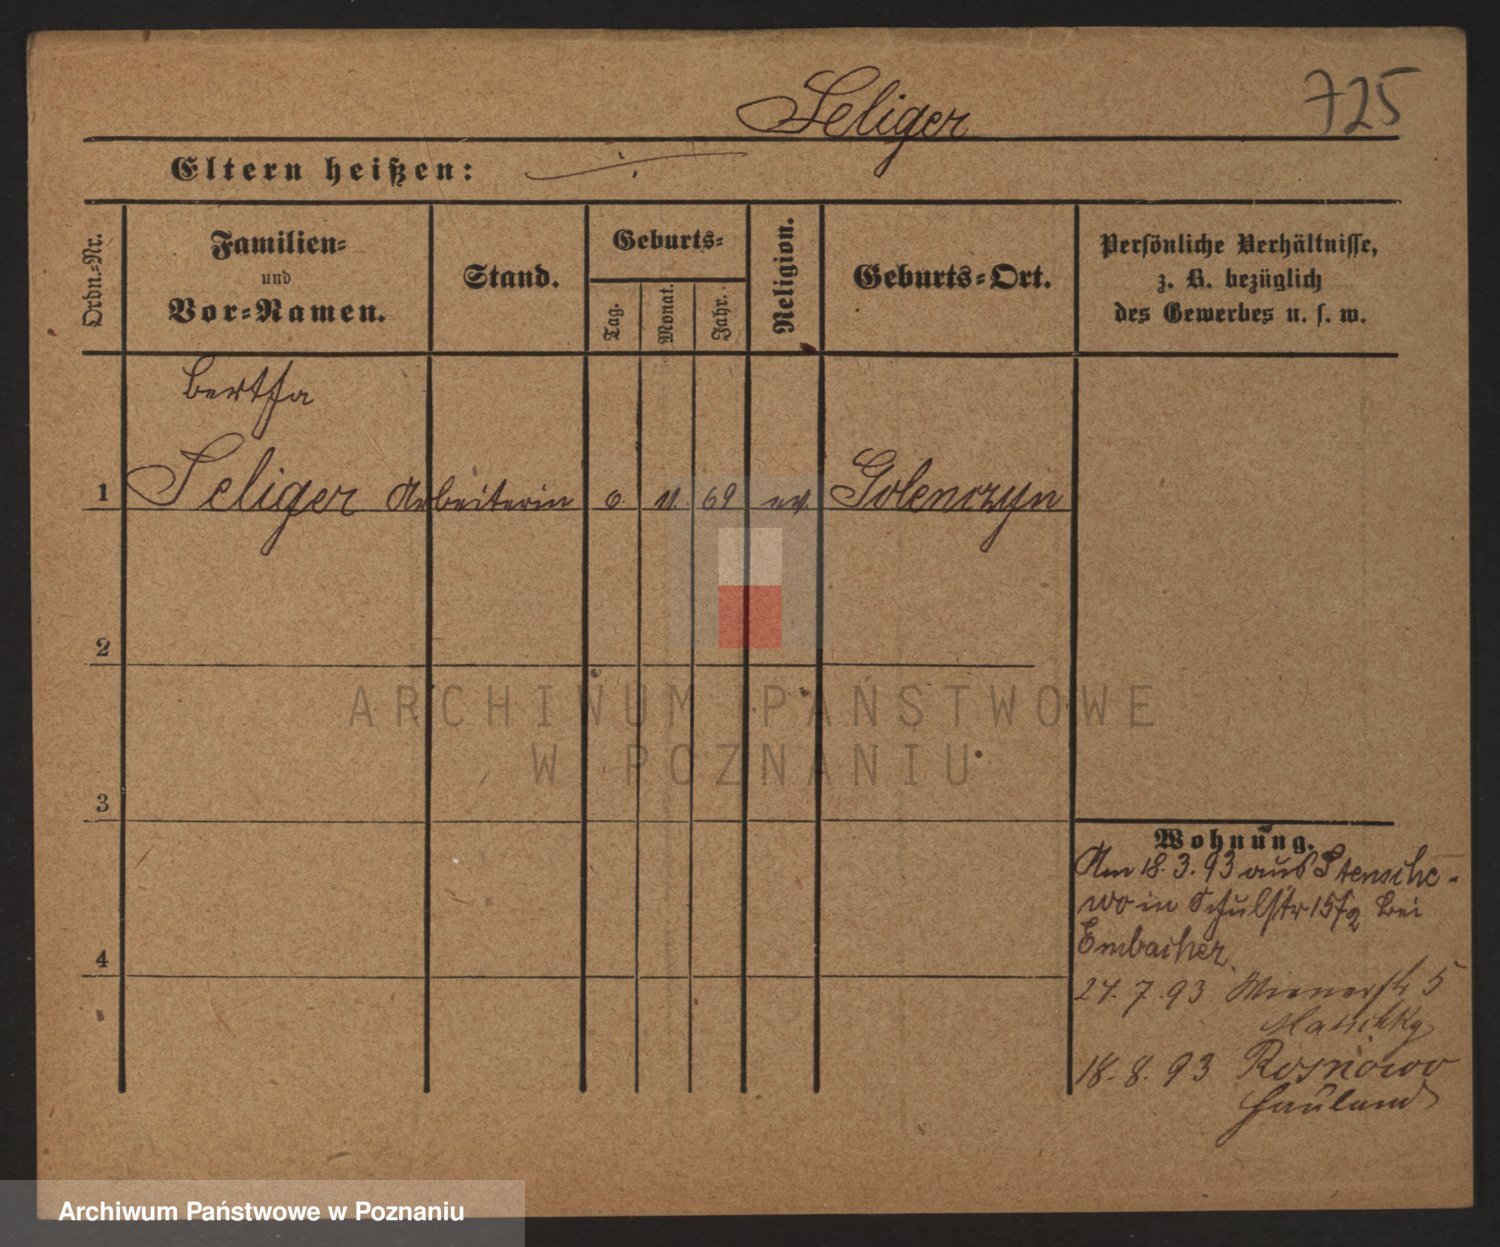 Seliger 725
Eltern heißen:
Ordn.=Nr.
Familien=
und
Vor=Namen.
Stand.
Geburts=
Tag.
Monat.
Jahr.
Religion.
Geburts=Ort.
Persönliche Verhältnisse,
z. B. bezüglich
des Gewerbes u. s. w.
Bertha
1 Seliger Arbeiterin 6. 11. 69 ev. Golenczyn
2
3
4
Wohnung.
Am 18.3.93 aus Stensche-
wo in Schulstr bei
Embacher
7.93 Wienerstr 5
18.8.93 Rosnowo
Hauland
ARCHIWUM PAŃSTWOWE
W POZNANIU
Archiwum Państwowe w Poznaniu